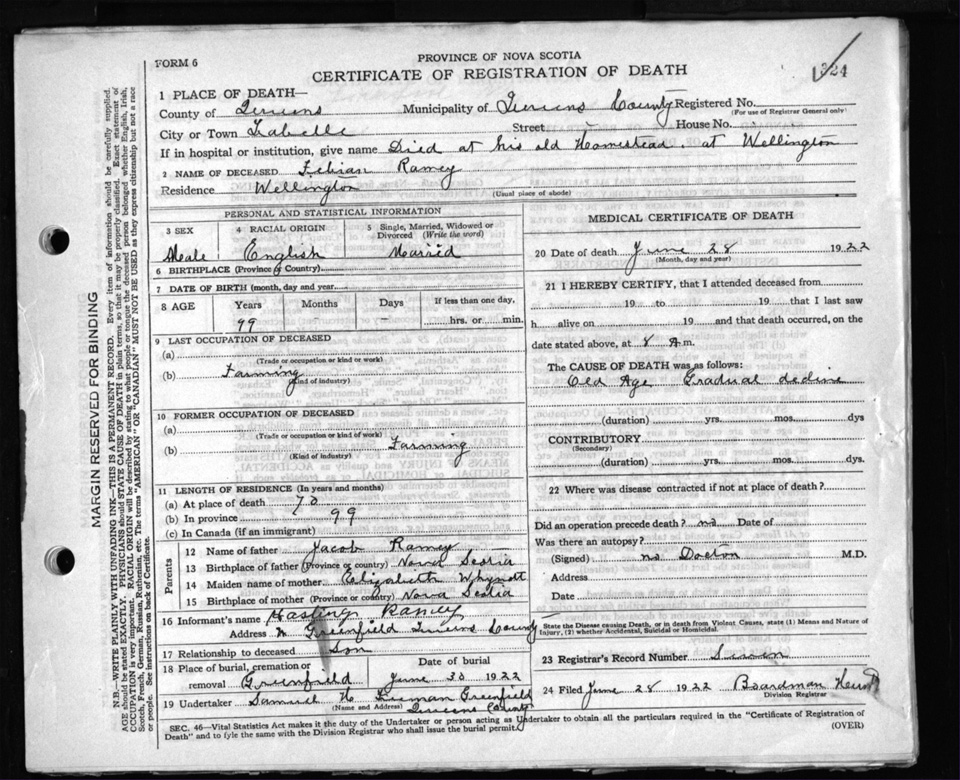 FORM 6
PROVINCE OF NOVA SCOTIA
CERTIFICATE OF REGISTRATION OF DEATH
324
1 PLACE OF DEATH—
County of Queens Municipality of Queens County Registered No.
(For use of Registrar General only)
City or Town Street House No.
If in hospital or institution, give name Died at his old Homestead. at Wellington
2 NAME OF DECEASED Ramey
Residence Wellington (Usual place of abode)
PERSONAL AND STATISTICAL INFORMATION
3 SEX 4 RACIAL ORIGIN 5 Single, Married, Widowed or Divorced (Write the word)
Male English Married
6 BIRTHPLACE (Province or Country)
7 DATE OF BIRTH (month, day and year)
8 AGE Years Months Days If less than one day,
99 - - hrs. or min.
9 LAST OCCUPATION OF DECEASED
(a)
(Trade or occupation or kind or work)
(b) Farming
(Kind of industry)
10 FORMER OCCUPATION OF DECEASED
(a)
(Trade or occupation or kind of work)
(b) Farming
(Kind of industry)
11 LENGTH OF RESIDENCE (In years and months)
(a) At place of death 70
(b) In province 99
(c) In Canada (if an immigrant)
Parents
12 Name of father Jacob Ramey
13 Birthplace of father (Province or country) Nova Scotia
14 Maiden name of mother Elizabeth Whynott
15 Birthplace of mother (Province or country) Nova Scotia
16 Informant's name Hastings Ramey
Address N Greenfield Queens County
17 Relationship to deceased Son
18 Place of burial, cremation or removal Greenfield
Date of burial June 30 1922
19 Undertaker Freeman Greenfield
(Name and Address) Queens County
MEDICAL CERTIFICATE OF DEATH
20 Date of death June 28 1922
(Month, day and year)
21 I HEREBY CERTIFY, that I attended deceased from
19 to 19 that I last saw
h alive on 19 and that death occurred, on the
date stated above, at 8 A.m.
The CAUSE OF DEATH was as follows:
Old Age Gradual decline
(duration) yrs. mos. dys
CONTRIBUTORY
(Secondary)
(duration) yrs. mos. dys.
22 Where was disease contracted if not at place of death?
Did an operation precede death? no Date of
Was there an autopsy?
(Signed) no Doctor M.D.
Address
Date
State the Disease causing Death, or in death from Violent Causes, state (1) Means and Nature of Injury, (2) whether Accidental, Suicidal or Homicidal.
23 Registrar's Record Number Seven
24 Filed June 28 1922 Boardman
Division Registrar
SEC. 46—Vital Statistics Act makes it the duty of the Undertaker or person acting as Undertaker to obtain all the particulars required in the "Certificate of Registration of
Death" and to fyle the same with the Division Registrar who shall issue the burial permit.
(OVER)
MARGIN RESERVED FOR BINDING
N.B.—WRITE PLAINLY WITH UNFADING INK—THIS IS A PERMANENT RECORD. Every item of information should be carefully supplied.
AGE should be stated EXACTLY. PHYSICIANS should STATE CAUSE OF DEATH in plain terms, so that it may be properly classified. Exact statement of
OCCUPATION is very important. RACIAL ORIGIN will be described by stating to what people or tongue the deceased person belonged whether English, Irish,
Scotch, French, German, Russian, Ruthenian, etc. The terms "AMERICAN" OR "CANADIAN" MUST NOT BE USED as they express citizenship but not a race
or people. See instructions on back of Certificate.